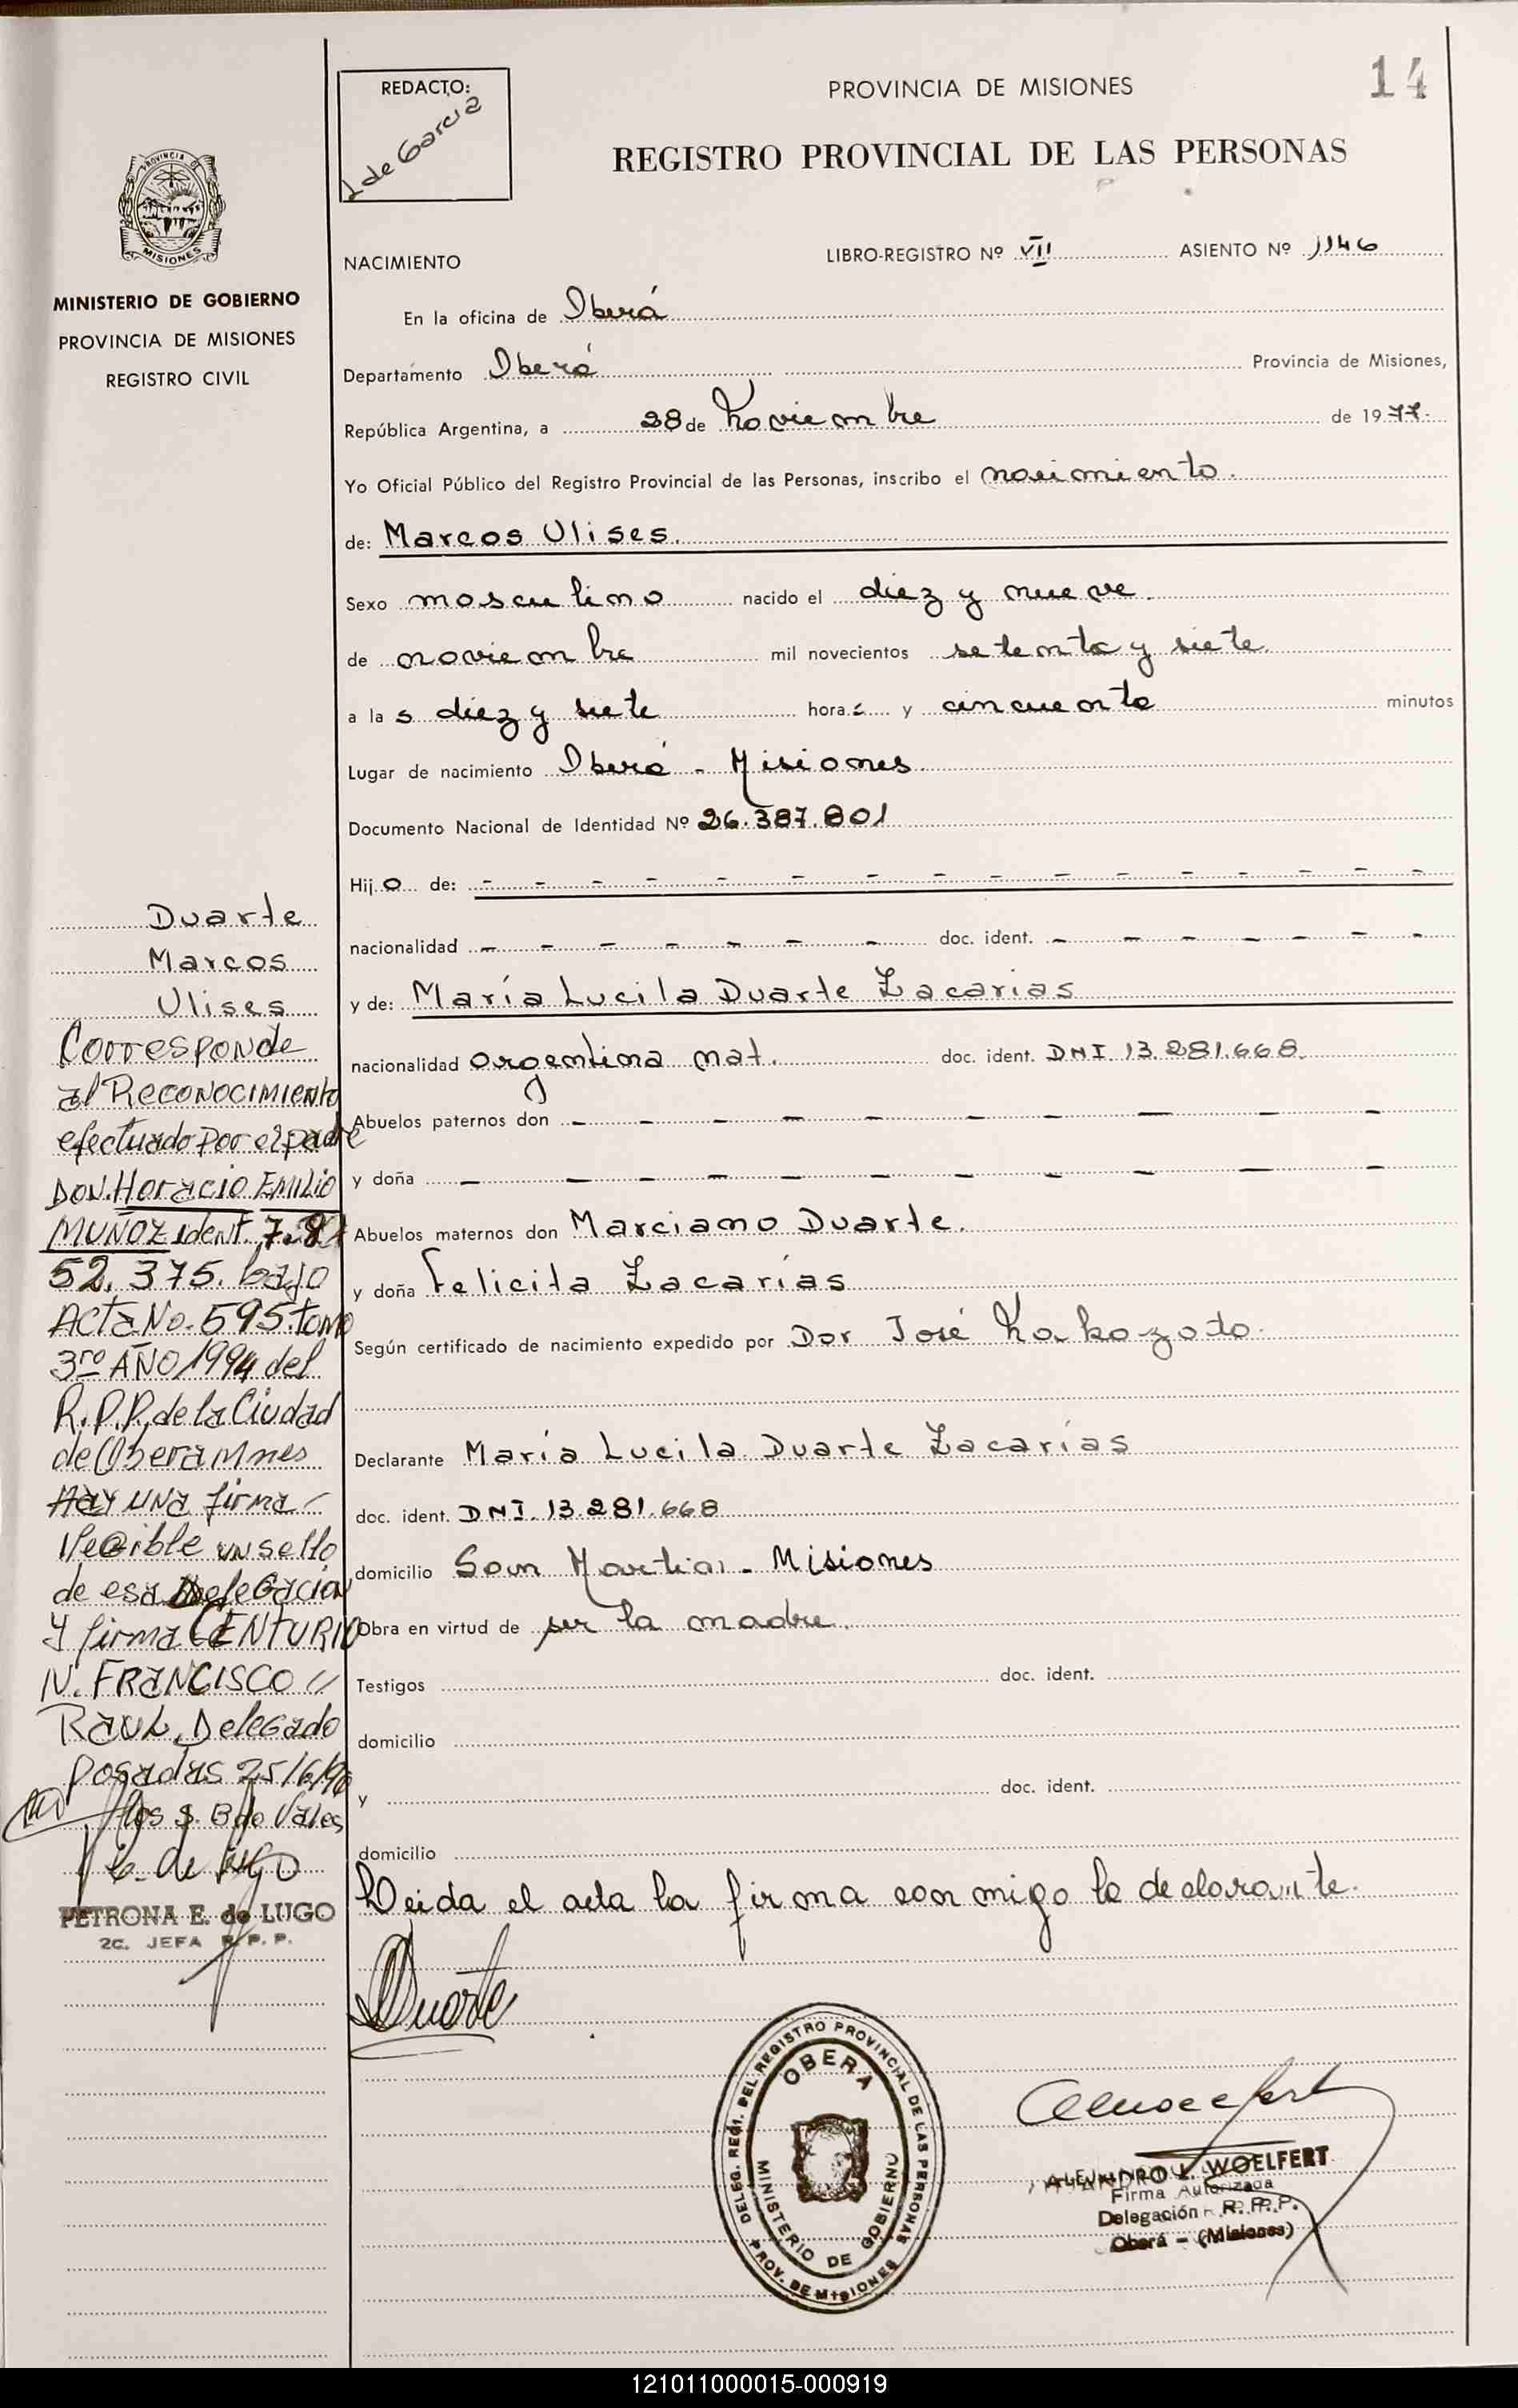 REDACTO:
de Garcia
PROVINCIA DE MISIONES
14
REGISTRO PROVINCIAL DE LAS PERSONAS
PROVINCIA DE
MISIONES
MINISTERIO DE GOBIERNO
PROVINCIA DE MISIONES
REGISTRO CIVIL
NACIMIENTO LIBRO-REGISTRO Nº VII ASIENTO Nº 1146
En la oficina de Oberá
Departamento Oberá Provincia de Misiones,
República Argentina, a 28 de Noviembre de 1977.
Yo Oficial Público del Registro Provincial de las Personas, inscribo el nacimiento.
de: Marcos Ulises.
Sexo masculino nacido el diez y nueve
de noviembre mil novecientos setenta y siete
a las diez y siete horas y cincuenta minutos
Lugar de nacimiento Oberá - Misiones
Documento Nacional de Identidad Nº 26.387.801
Hijo de: - - - - - - - - - - - - - - - -
nacionalidad - - - - - - - doc. ident. - - - - - - -
y de: María Lucila Duarte Zacarias
nacionalidad argentina nat. doc. ident. DNI 13.281.668
Abuelos paternos don - - - - - - - - - -
y doña - - - - - - - - - -
Abuelos maternos don Marciano Duarte.
y doña Felicita Zacarías
Según certificado de nacimiento expedido por Dor José
Declarante María Lucila Duarte Zacarías
doc. ident. DNI. 13.281.668
domicilio San Martin - Misiones
Obra en virtud de ser la madre.
Testigos doc. ident.
domicilio
y doc. ident.
domicilio
Leida el acta la firma conmigo la declarante.
Duarte
Duarte
Marcos
Ulises
Corresponde
al Reconocimiento
efectuado por el padre
DON. Horacio Emilio
MUÑOZ ident. 7.8
52.375. bajo
Acta No. 595. tomo
3ro AÑO 1994 del
R.P.P. de la Ciudad
de Obera Mnes
Hay una firma
ilegible un sello
de esa Delegacion
y firma CENTURIO
N. FRANCISCO //
RAUL. Delegado
Posadas 25/6/96
de Lugo
PETRONA E. de LUGO
2C. JEFA R.P.P.
DELEG. REGI. DEL REGISTRO PROVINCIAL DE LAS PERSONAS
OBERA
MINISTERIO DE GOBIERNO
PROV. DE MISIONES
ALEJANDRO L. WOELFERT
Firma Autorizada
Delegación R. P. P.
Oberá - (Misiones)
121011000015-000919